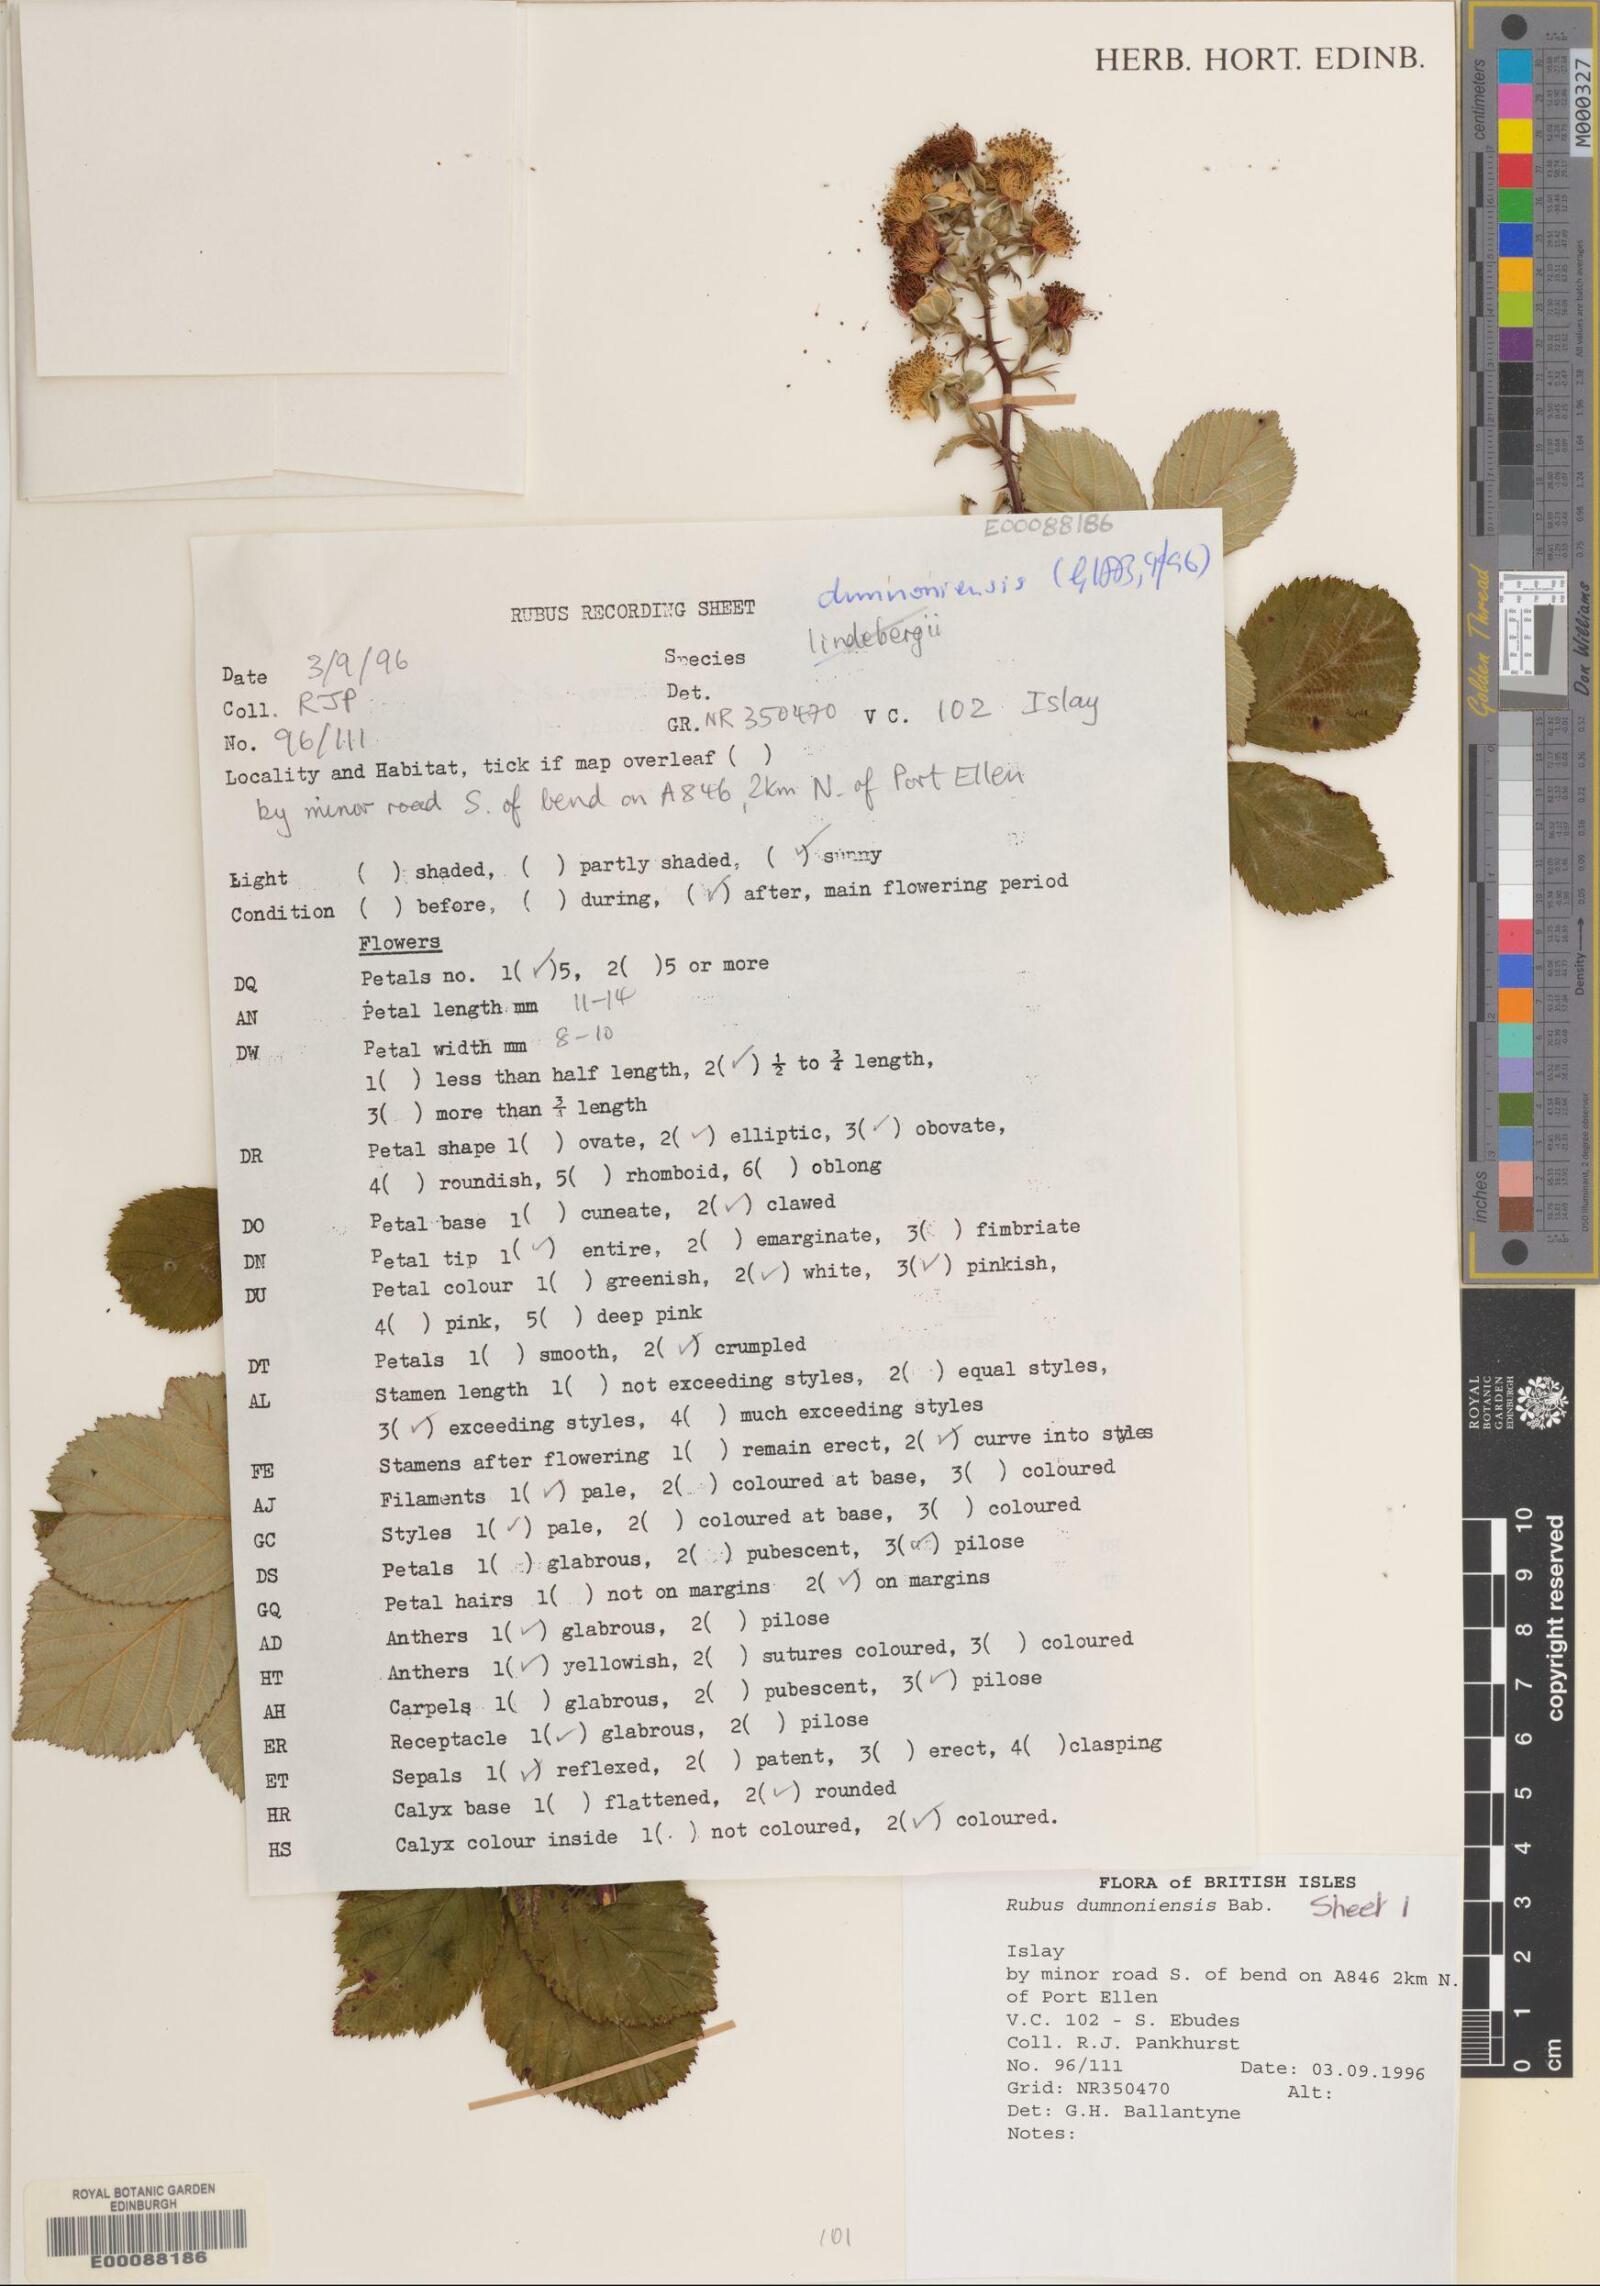 HERB. HORT. EDINB.
E00088186
dumnoniensis (GHB, 9/96)
RUBUS RECORDING SHEET
lindebergii
Date 3/9/96 Species
Coll. RJP Det.
No. 96/111 GR. NR 350470 V C. 102 Islay
Locality and Habitat, tick if map overleaf ( )
by minor road S. of bend on A846, 2km N. of Port Ellen
Light ( ) shaded, ( ) partly shaded, ( ✓) sunny
Condition ( ) before, ( ) during, (✓) after, main flowering period
Flowers
DQ Petals no. 1(✓)5, 2( )5 or more
AN Petal length mm 11-14
DW Petal width mm 8-10
1( ) less than half length, 2(✓) ½ to ¾ length,
3( ) more than ¾ length
DR Petal shape 1( ) ovate, 2(✓) elliptic, 3(✓) obovate,
4( ) roundish, 5( ) rhomboid, 6( ) oblong
DO Petal base 1( ) cuneate, 2(✓) clawed
DN Petal tip 1(✓) entire, 2( ) emarginate, 3( ) fimbriate
DU Petal colour 1( ) greenish, 2(✓) white, 3(✓) pinkish,
4( ) pink, 5( ) deep pink
DT Petals 1( ) smooth, 2(✓) crumpled
AL Stamen length 1( ) not exceeding styles, 2( ) equal styles,
3(✓) exceeding styles, 4( ) much exceeding styles
FE Stamens after flowering 1( ) remain erect, 2(✓) curve into styles
AJ Filaments 1(✓) pale, 2( ) coloured at base, 3( ) coloured
GC Styles 1(✓) pale, 2( ) coloured at base, 3( ) coloured
DS Petals 1( ) glabrous, 2( ) pubescent, 3(✓) pilose
GQ Petal hairs 1( ) not on margins 2(✓) on margins
AD Anthers 1(✓) glabrous, 2( ) pilose
HT Anthers 1(✓) yellowish, 2( ) sutures coloured, 3( ) coloured
AH Carpels 1( ) glabrous, 2( ) pubescent, 3(✓) pilose
ER Receptacle 1(✓) glabrous, 2( ) pilose
ET Sepals 1(✓) reflexed, 2( ) patent, 3( ) erect, 4( )clasping
HR Calyx base 1( ) flattened, 2(✓) rounded
HS Calyx colour inside 1( ) not coloured, 2(✓) coloured.
FLORA of BRITISH ISLES
Rubus dumnoniensis Bab. Sheet 1
Islay
by minor road S. of bend on A846 2km N.
of Port Ellen
V.C. 102 - S. Ebudes
Coll. R.J. Pankhurst
No. 96/111 Date: 03.09.1996
Grid: NR350470 Alt:
Det: G.H. Ballantyne
Notes:
ROYAL BOTANIC GARDEN
EDINBURGH
E00088186
101
centimeters
M000327
All values are batch averages
Golden Thread
Don Williams
Density
inches
D50 Illuminant, 2 degree observer
ROYAL
BOTANIC
GARDEN
EDINBURGH
0 1 2 3 4 5 6 7 8 9 10
cm
copyright reserved